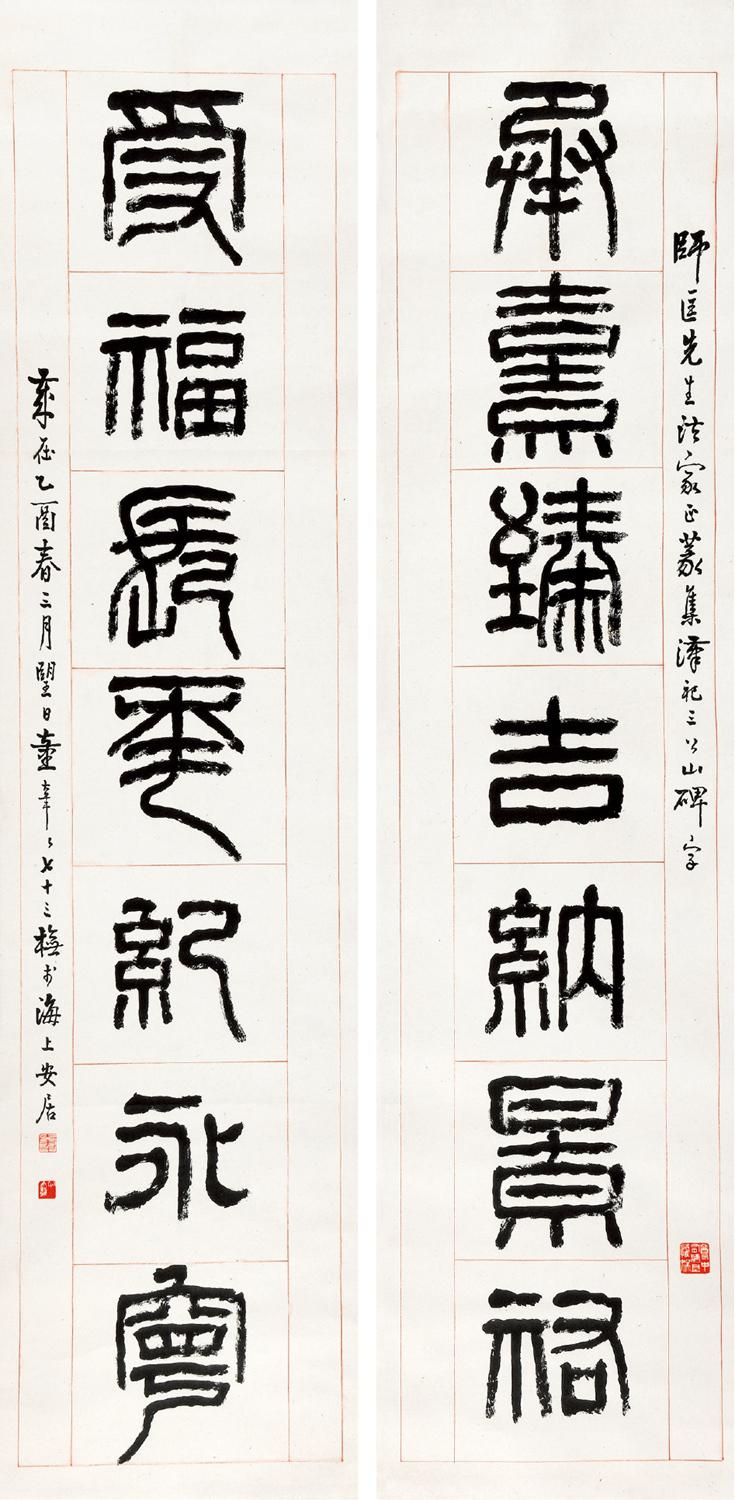 承熹臻吉納景
受福長年紀永寧
師匡先生法家正篆集漢祀三公山碑字
歲在乙酉春三月望日童七十三於海上安居